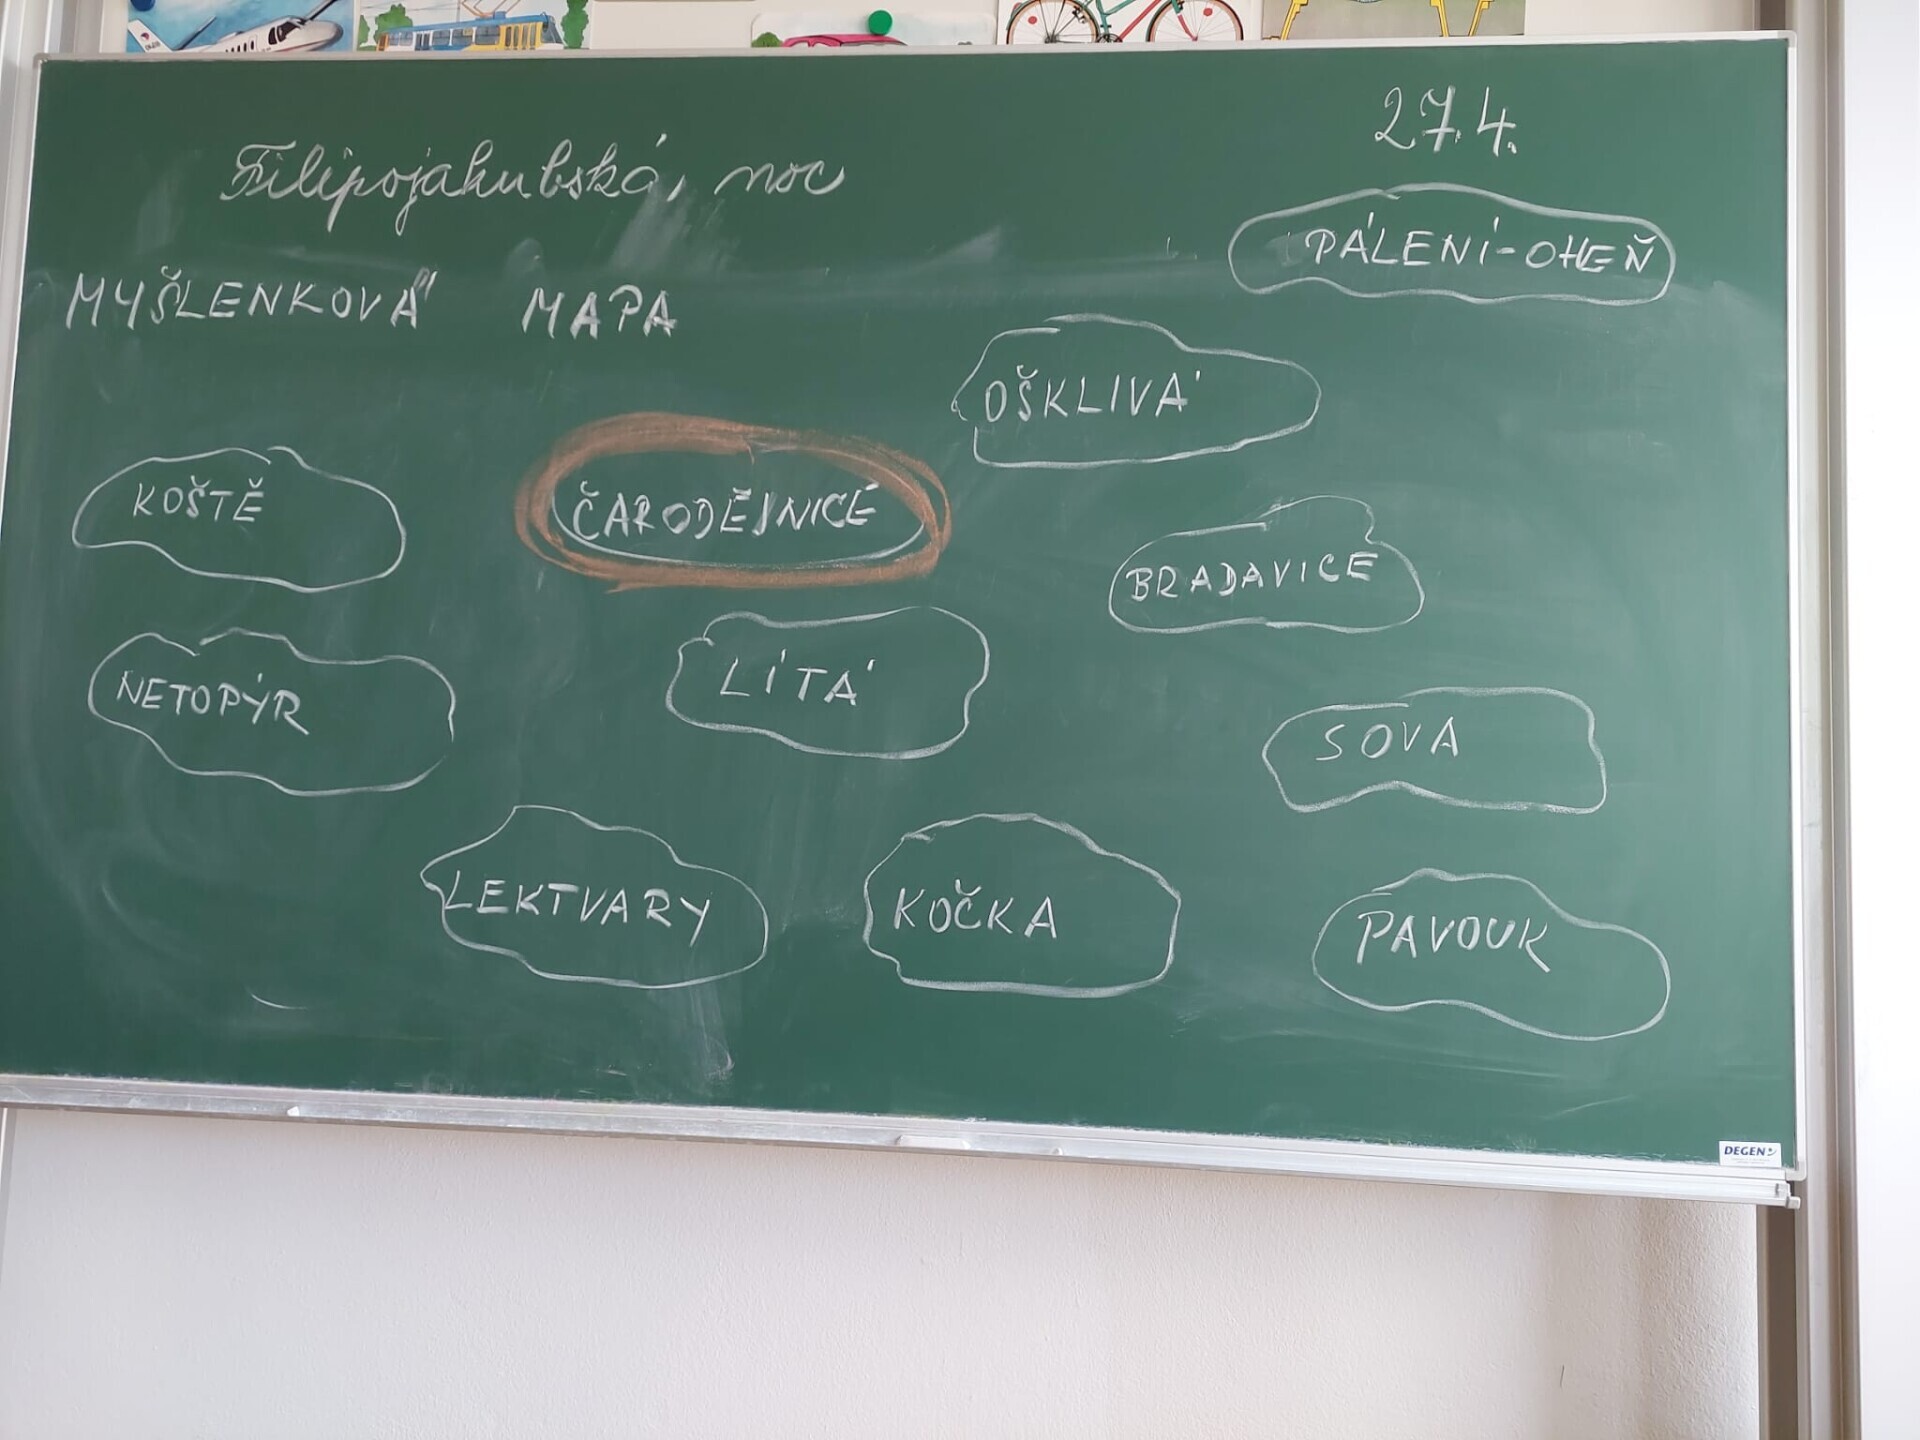 27.4.
Filipojakubská, noc
PÁLENÍ-OHEŇ
MYŠLENKOVÁ MAPA
OŠKLIVÁ
KOŠTĚ
ČARODĚJNICE
BRADAVICE
NETOPÝR
LÍTÁ
SOVA
LEKTVARY
KOČKA
PAVOUK
DEGEN